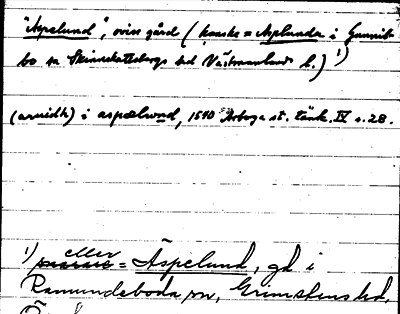 "Aspelund", oviss gård (kanske = Asplunda i Gunnils
bo sn Skinnskattebergs hd Västmanlands l.) 1)
(arvidh) i aspælwnd, 1510 Arboga st. tänk. IV s. 28.
1) eller = Äspelund, gd i
Ramundeboda sn, Grimstens hd,